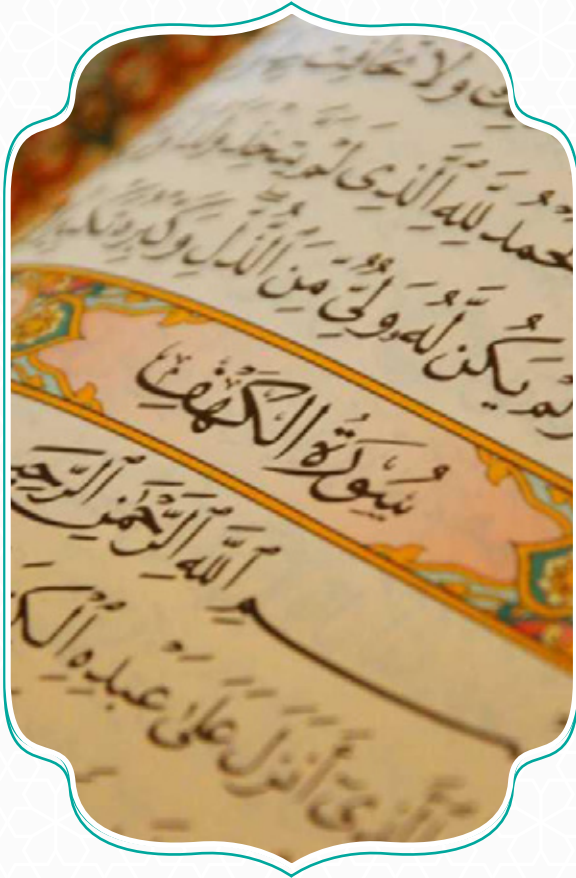 ولا تخافت
لحمد لله الذى لم يتخذ ولدا
لم يكن له ولى من الذل وكبره
سورة الكهف
بسم الله الرحمن الرحيم
الذى أنزل على عبده